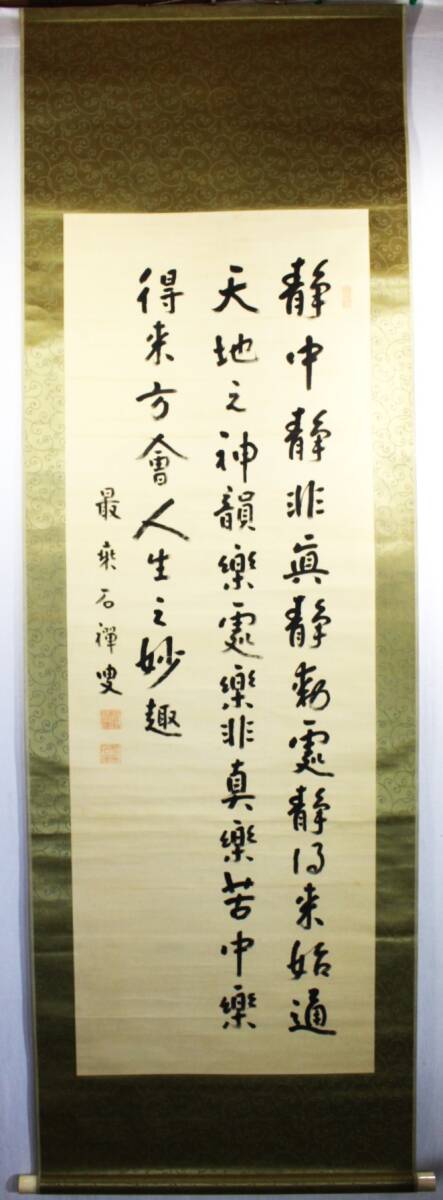 静中静非真静動處静得来始通
天地之神韻樂處樂非真樂苦中樂
得来方會人生之妙趣
最乗石禅叟